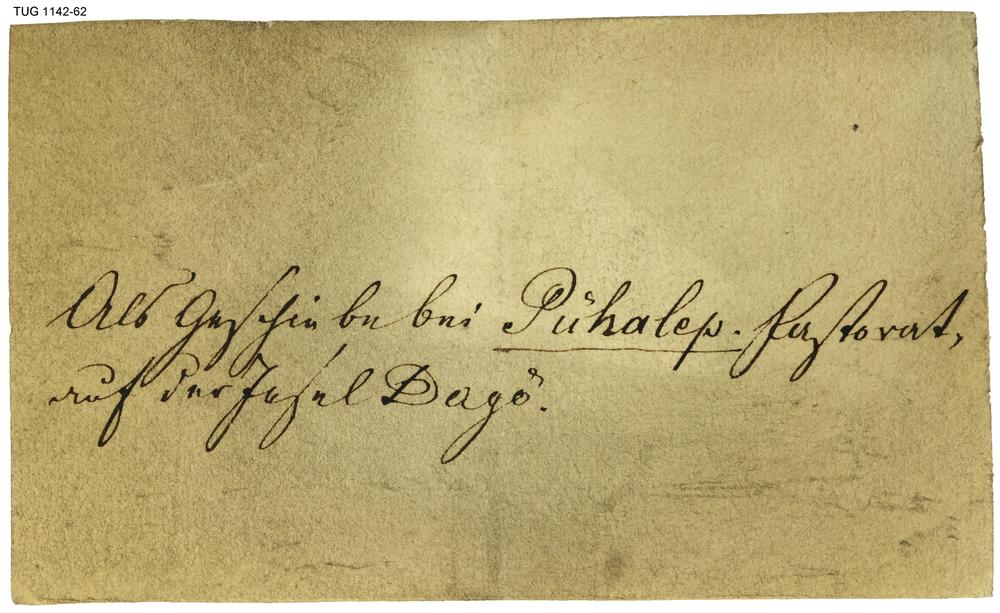 TUG 1142-62
Als Geschiebe bei Pühalep. Pastorat,
auf der Insel Dagö.